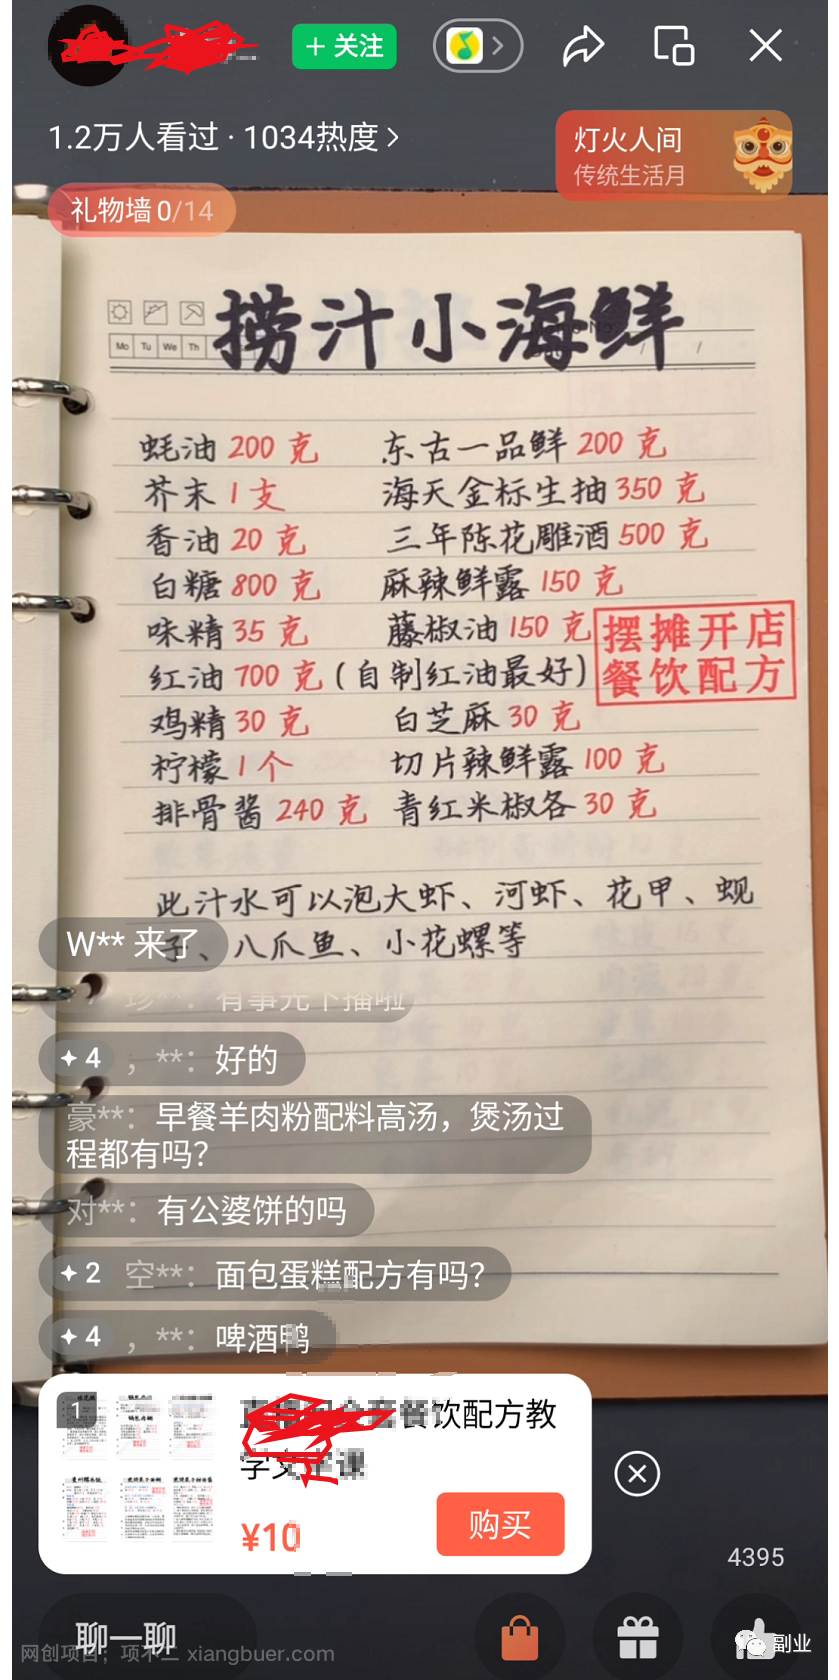 + 关注
1.2万人看过 · 1034热度 >
灯火人间
传统生活月
礼物墙 0/14
捞汁小海鲜
Mo Tu We Th
蚝油 200 克 东古一品鲜 200 克
芥末 1 支 海天金标生抽 350 克
香油 20 克 三年陈花雕酒 500 克
白糖 800 克 麻辣鲜露 150 克
味精 35 克 藤椒油 150 克
红油 700 克 (自制红油最好)
摆摊开店
餐饮配方
鸡精 30 克 白芝麻 30 克
柠檬 1 个 切片辣鲜露 100 克
排骨酱 240 克 青红米椒各 30 克
此汁水可以泡大虾、河虾、花甲、蚬
子、八爪鱼、小花螺等
W** 来了
珍**：有事先下播啦
4 ，**：好的
豪**：早餐羊肉粉配料高汤，煲汤过
程都有吗？
对**：有公婆饼的吗
2 空**：面包蛋糕配方有吗？
4 ，**：啤酒鸭
1
餐饮配方教
学文 课
¥10
购买
4395
聊一聊
网创项目；项不二 xiangbuer.com
副业